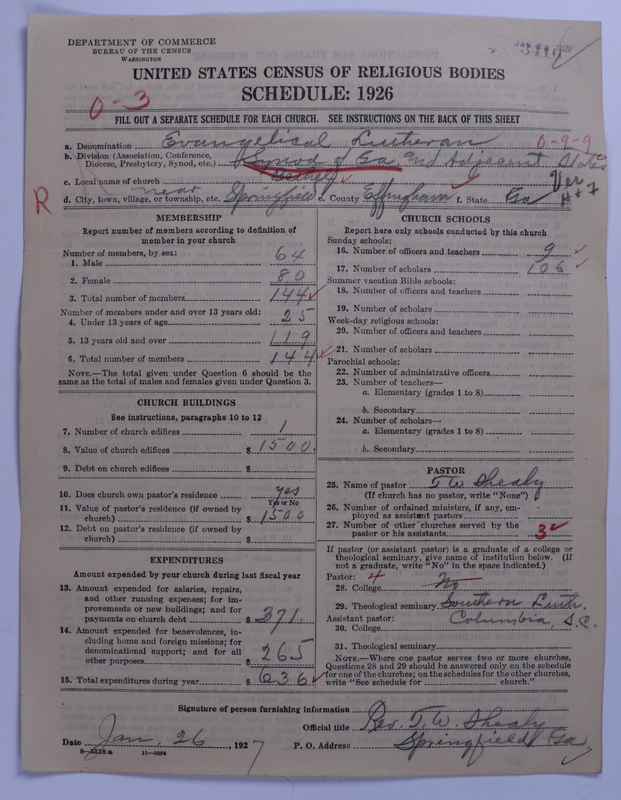 DEPARTMENT OF COMMERCE
BUREAU OF THE CENSUS
WASHINGTON
UNITED STATES CENSUS OF RELIGIOUS BODIES
SCHEDULE: 1926
0-3
FILL OUT A SEPARATE SCHEDULE FOR EACH CHURCH. SEE INSTRUCTIONS ON THE BACK OF THIS SHEET
a. Denomination Evangelical Lutheran 0-9-9
b. Division (Association, Conference, Diocese, Presbytery, Synod, etc.) Synod of Ga. and Adjacent States
c. Local name of church Bethel
d. City, town, village, or township, etc. near Springfield e. County Effingham f. State Ga
R
MEMBERSHIP
Report number of members according to definition of
member in your church
Number of members, by sex:
1. Male 64
2. Female 80
3. Total number of members 144
Number of members under and over 13 years old:
4. Under 13 years of age 25
5. 13 years old and over 119
6. Total number of members 144
NOTE.—The total given under Question 6 should be the
same as the total of males and females given under Question 3.
CHURCH BUILDINGS
See instructions, paragraphs 10 to 12
7. Number of church edifices 1
8. Value of church edifices $1500
9. Debt on church edifices $
10. Does church own pastor's residence yes
Yes or No
11. Value of pastor's residence (if owned by
church) $1500
12. Debt on pastor's residence (if owned by
church) $
EXPENDITURES
Amount expended by your church during last fiscal year
13. Amount expended for salaries, repairs,
and other running expenses; for im-
provements or new buildings; and for
payments on church debt $371.
14. Amount expended for benevolences, in-
cluding home and foreign missions; for
denominational support; and for all
other purposes $265
15. Total expenditures during year $636
CHURCH SCHOOLS
Report here only schools conducted by this church
Sunday schools:
16. Number of officers and teachers 9
17. Number of scholars 106
Summer vacation Bible schools:
18. Number of officers and teachers
19. Number of scholars
Week-day religious schools:
20. Number of officers and teachers
21. Number of scholars
Parochial schools:
22. Number of administrative officers
23. Number of teachers—
a. Elementary (grades 1 to 8)
b. Secondary
24. Number of scholars—
a. Elementary (grades 1 to 8)
b. Secondary
PASTOR
25. Name of pastor T. W. Shealy
(If church has no pastor, write "None")
26. Number of ordained ministers, if any, em-
ployed as assistant pastors
27. Number of other churches served by the
pastor or his assistants 3
If pastor (or assistant pastor) is a graduate of a college or
theological seminary, give name of institution below. (If
not a graduate, write "No" in the space indicated.)
Pastor: 4
28. College No
29. Theological seminary Southern Luth.
Assistant pastor: Columbia, S.C.
30. College
31. Theological seminary
NOTE.—Where one pastor serves two or more churches,
Questions 28 and 29 should be answered only on the schedule
for one of the churches; on the schedules for the other churches,
write "See schedule for church."
Signature of person furnishing information
Official title Rev. T. W. Shealy
Date Jan. 26, 1927 P. O. Address Springfield Ga
8—5518a 11—9034